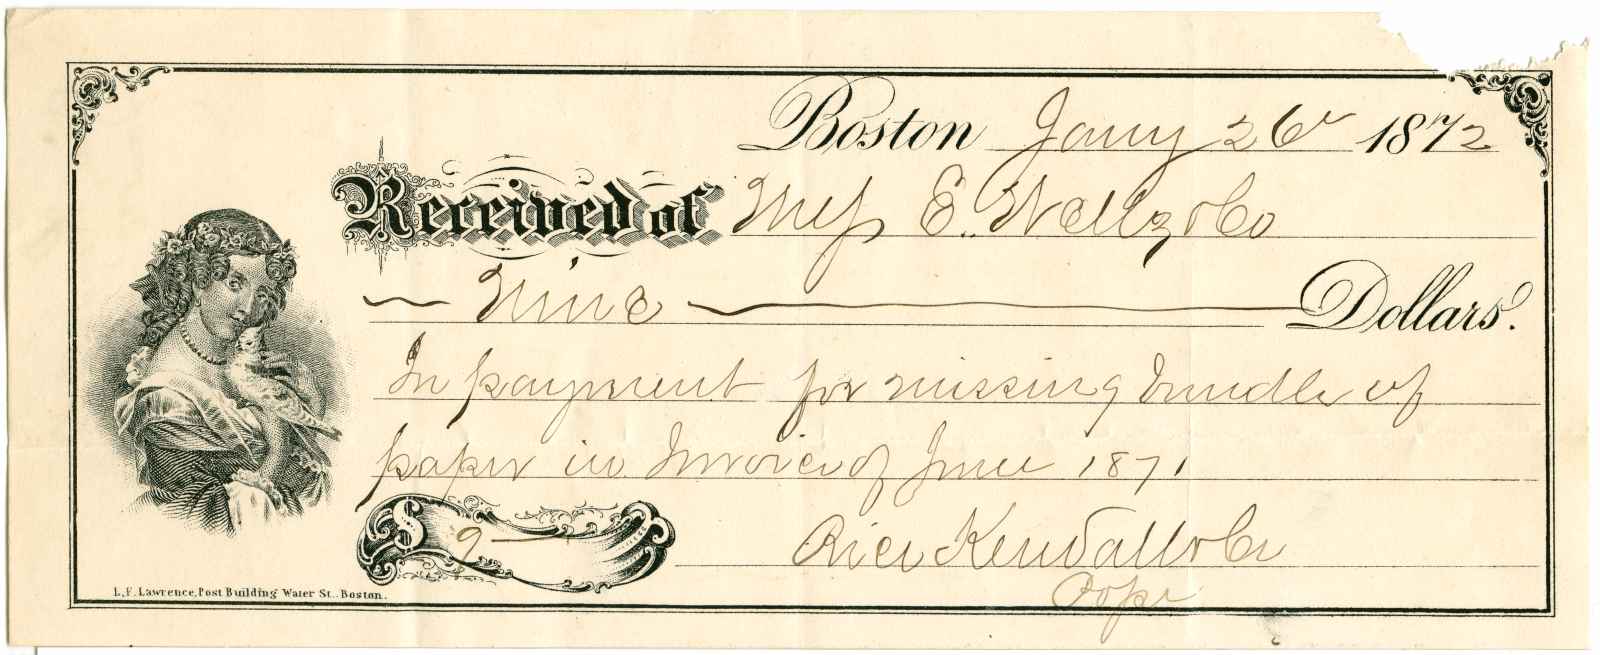 Boston Jany 26 1872
Received of Mess E. Wells & Co
Nine Dollars.
In payment for missing bundle of
paper in Invoice of June 1871
$ 9 — Rice Kendall & Co
Pope
L. F. Lawrence, Post Building Water St.. Boston.